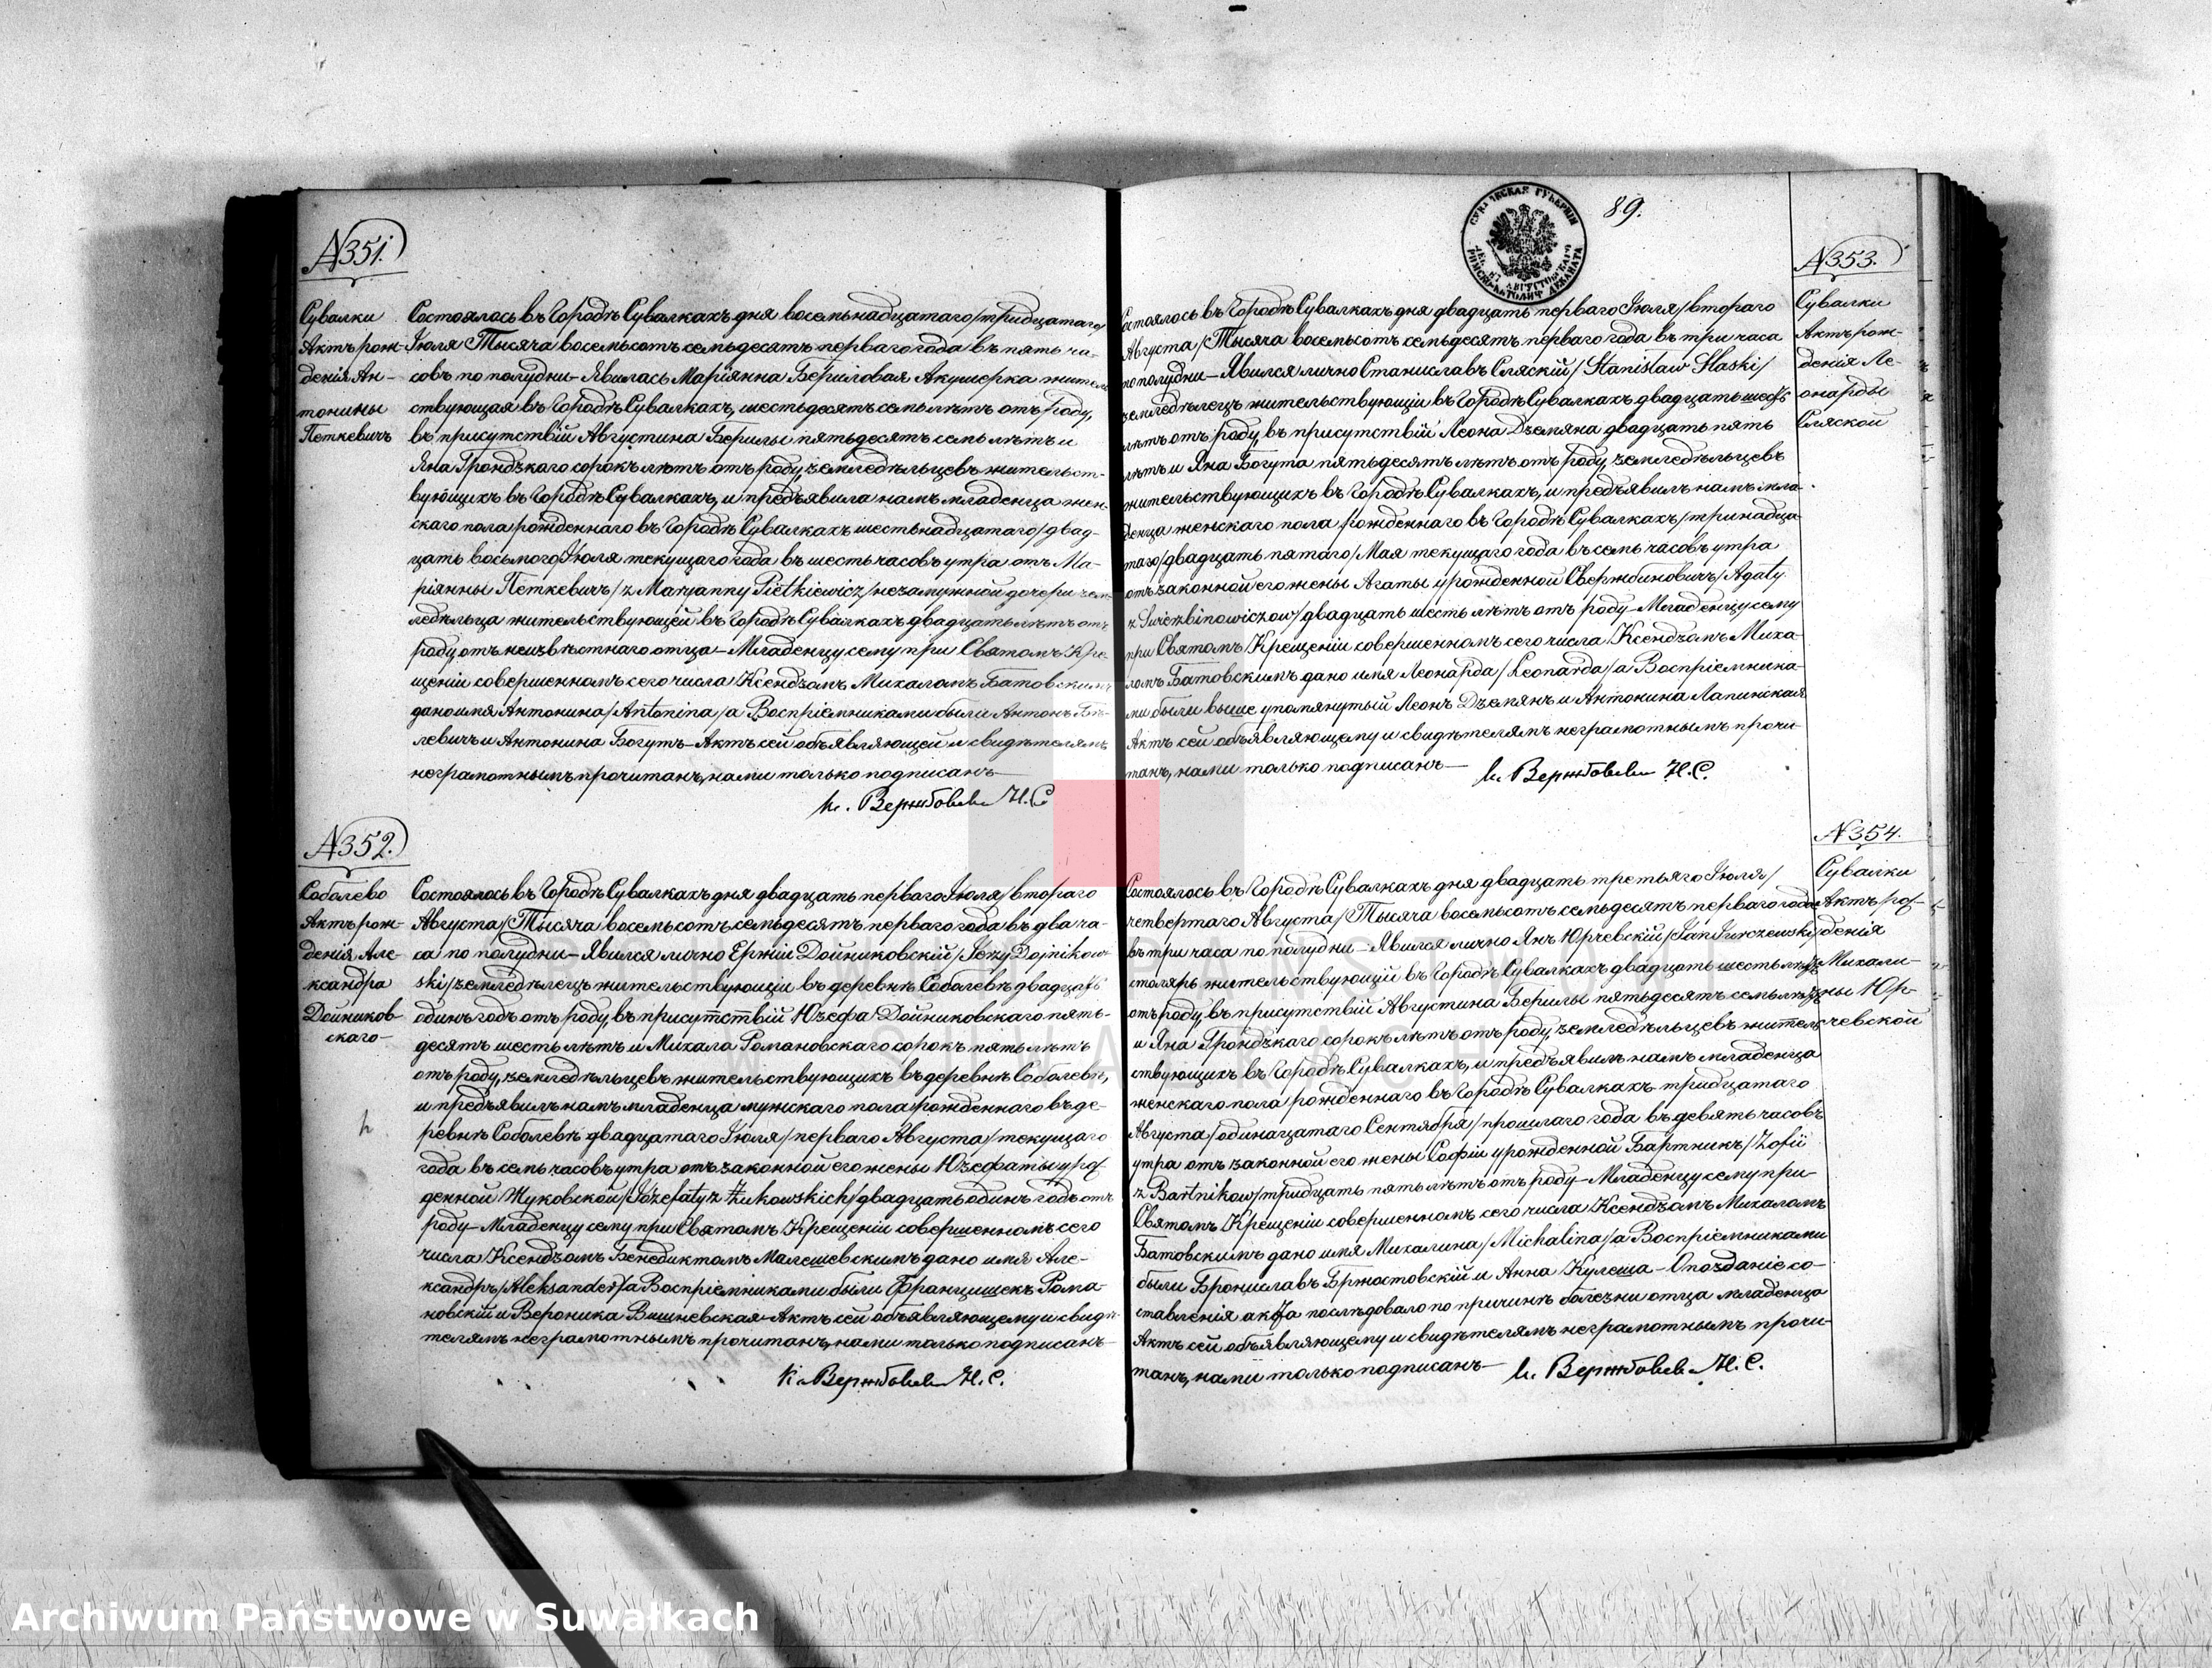 N351.
Сувалки
Актъ рож-
денія Ан-
тонины
Петкевичъ
Состоялось въ Городѣ Сувалкахъ дня восемьнадцатаго/тридцатаго/
Іюля Тысяча восемьсотъ семьдесятъ перваго года въ пять ча-
совъ по полудни – Явилась Маріянна Бериловая Акушерка житель
ствующая въ Городѣ Сувалкахъ, шестьдесятъ семь лѣтъ отъ роду,
въ присутствіи Августина Берилы пятьдесятъ семь лѣтъ и
Яна Грондзкаго сорокъ лѣтъ отъ роду, земледѣльцевъ жительст-
вующихъ въ Городѣ Сувалкахъ, и предъявила намъ младенца жен-
скаго пола рожденнаго въ Городѣ Сувалкахъ шестьнадцатаго/двад-
цать восьмого/Іюля текущаго года въ шесть часовъ утра отъ Ма-
ріянны Петкевичъ/z Maryanny Pietkiewicz/незамужной дочери зем
ледѣльца жительствующей въ Городѣ Сувалкахъ двадцать лѣтъ отъ
роду, отъ неизвѣстнаго отца – Младенцу сему при Святомъ Кре
щеніи совершенномъ сего числа Ксендзомъ Михаломъ Батовскимъ
дано имя Антонина/Antonina/а Воспріемниками были Антонъ
левичъ и Антонина Богутъ – Актъ сей объявляющей и свидѣтелямъ
неграмотнымъ прочитанъ, нами только подписанъ –
К. Вержбовск Н.С
N352.
Соболево
Актъ рож-
денія Але-
ксандра
Дойников-
скаго –
Состоялось въ Городѣ Сувалкахъ дня двадцать перваго Іюля/втораго
Августа/Тысяча восемьсотъ семьдесятъ перваго года въ два ча-
са по полудни – Явился лично Ержій Дойниковскій/Jerzy Dojnikow-
ski/земледѣлецъ жительствующіи въ деревнѣ Соболевѣ двадцать
одинъ годъ отъ роду, въ присутствіи Юзефа Дойниковскаго пять-
десятъ шесть лѣтъ и Михала Романовскаго сорокъ пять лѣтъ
отъ роду, земледѣльцевъ жительствующихъ въ деревнѣ Соболевѣ,
и предъявилъ намъ младенца мужскаго пола рожденнаго въ де-
ревнѣ Соболевѣ двадцатаго Іюля/перваго Августа/текущаго
года въ семь часовъ утра отъ законной его жены Юзефаты урож
денной Жуковской/Józefaty z Żukowskich/двадцать одинъ годъ отъ
роду – Младенцу сему при Святомъ Крещеніи совершенномъ сего
числа Ксендзомъ Бенедиктомъ Малешевскимъ дано имя Але-
ксандръ/Aleksander/а Воспріемниками были Францишекъ Рома
новскій и Вероника Вишневская – Актъ сей объявляющему и свидѣ
телямъ неграмотнымъ прочитанъ, нами только подписанъ –
К. Вержбовск Н.С.
89.
Состоялось въ Городѣ Сувалкахъ дня двадцать перваго Іюля/втораго
Августа/Тысяча восемьсотъ семьдесятъ перваго года въ три часа
по полудни – Явился лично Станиславъ Сляскій/Stanisław Slaski/
земледѣлецъ жительствующіи въ Городѣ Сувалкахъ двадцать шесть
лѣтъ отъ роду, въ присутствіи Леона Дземяна двадцать пять
лѣтъ и Яна Богута пятьдесятъ лѣтъ отъ роду, земледѣльцевъ
жительствующихъ въ Городѣ Сувалкахъ, и предъявилъ намъ мла-
денца женскаго пола рожденнаго въ Городѣ Сувалкахъ/тринадца-
таго/двадцать пятаго/Мая текущаго года въ семь часовъ утра
отъ законной его жены Агаты урожденной Свержбиновичъ/Agaty
z Swierzbinowiczow/двадцать шесть лѣтъ отъ роду – Младенцу сему
при Святомъ Крещеніи совершенномъ сего числа Ксендзомъ Миха-
ломъ Батовскимъ дано имя Леонарда/Leonarda/а Воспріемника-
ми были выше упомянутый Леонъ Дземянъ и Антонина Лапинская
Актъ сей объявляющему и свидѣтелямъ неграмотнымъ прочи-
танъ, нами только подписанъ – К. Вержбовск Н.С.
N353.
Сувалки
Актъ рож-
денія Ле-
онарды
Сляской
Состоялось въ Городѣ Сувалкахъ дня двадцать третьяго Іюля/
четвертаго Августа/Тысяча восемьсотъ семьдесятъ перваго года
въ три часа по полудни – Явился лично Янъ Юрчевскій/Jan Jurczewski/
столяръ жительствующій въ Городѣ Сувалкахъ двадцать шесть лѣтъ
отъ роду, въ присутствіи Августина Берилы пятьдесятъ семь лѣтъ
и Яна Грондзкаго сорокъ лѣтъ отъ роду, земледѣльцевъ житель
ствующихъ въ Городѣ Сувалкахъ, и предъявилъ намъ младенца
женскаго пола рожденнаго въ Городѣ Сувалкахъ тридцатаго
Августа/одинацатаго Сентября/прошлаго года въ девять часовъ
утра отъ законной его жены Софіи урожденной Бартникъ/Zofii
z Bartnikow/тридцать пять лѣтъ отъ роду – Младенцу сему при
Святомъ Крещеніи совершенномъ сего числа Ксендзомъ Михаломъ
Батовскимъ дано имя Михалина/Michalina/а Воспріемниками
были Брониславъ Бржостовскій и Анна Кулеша – Опозданіе со-
ставленія акта послѣдовало по причинѣ болезни отца младенца
Актъ сей объявляющему и свидѣтелямъ неграмотнымъ прочи-
танъ, нами только подписанъ – К. Вержбовск Н.С.
N354.
Сувалки
Актъ рож-
денія
Михали-
ны Юр-
чевской
Archiwum Państwowe w Suwałkach